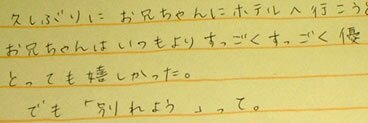 久しぶりに お兄ちゃんにホテルへ行こうと
お兄ちゃんは いつもより すっごく すっごく 優
とっても嬉しかった。
でも 「別れよう」って。